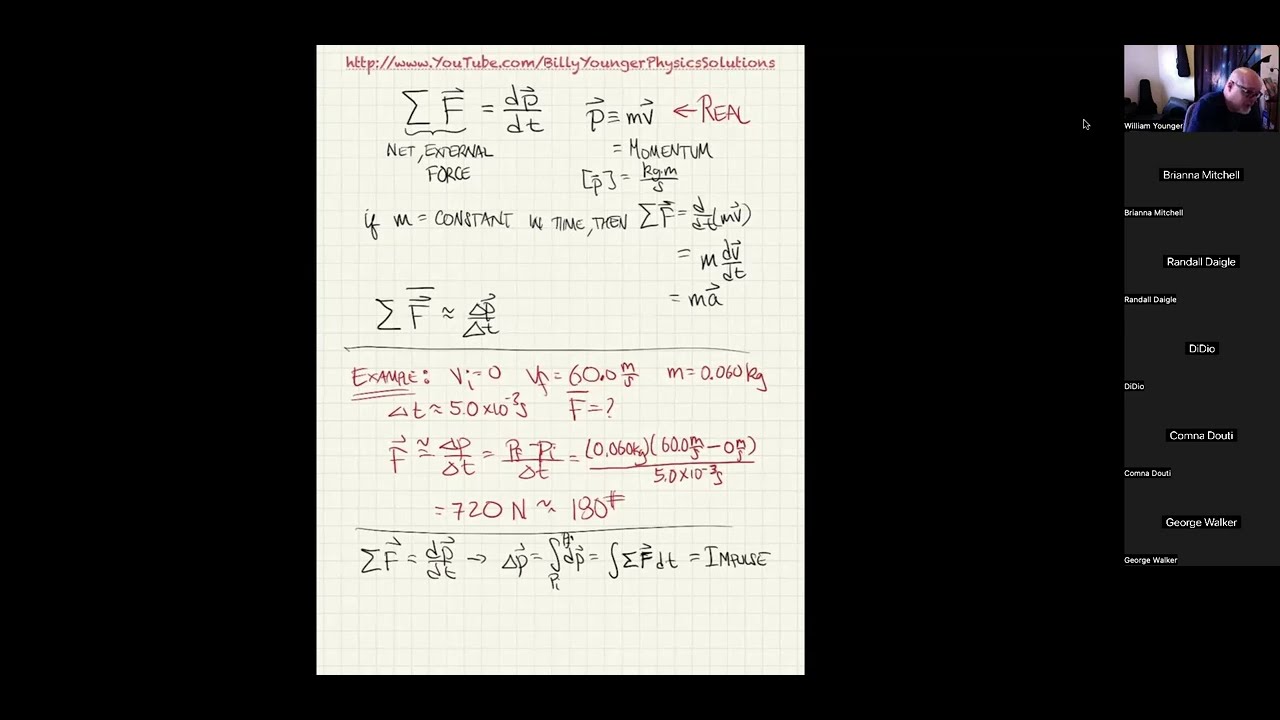 http://www.YouTube.com/BillyYoungerPhysicsSolutions
∑F⃗ = dp⃗/dt   p⃗ ≡ mv⃗ ← REAL
NET, EXTERNAL FORCE   = MOMENTUM
[p⃗] = kg·m/s
if m = CONSTANT IN TIME, THEN ∑F⃗ = d/dt(mv⃗)
= m dv⃗/dt
= ma⃗
∑F̅⃗ ≈ Δp⃗/Δt
EXAMPLE: Vi = 0   Vf = 60.0 m/s   m = 0.060 kg
Δt ≈ 5.0×10⁻³s   F̅ = ?
F⃗ ≈ Δp/Δt = (Pf - Pi)/Δt = (0.060kg)(60.0 m/s - 0 m/s)/5.0×10⁻³s
= 720 N ≈ 180#
∑F⃗ = dp⃗/dt → Δp⃗ = ∫ₚᵢᴾᶠ dp⃗ = ∫∑F⃗ dt = IMPULSE
William Younger
Brianna Mitchell
Brianna Mitchell
Randall Daigle
Randall Daigle
DiDio
DiDio
Comna Douti
Comna Douti
George Walker
George Walker